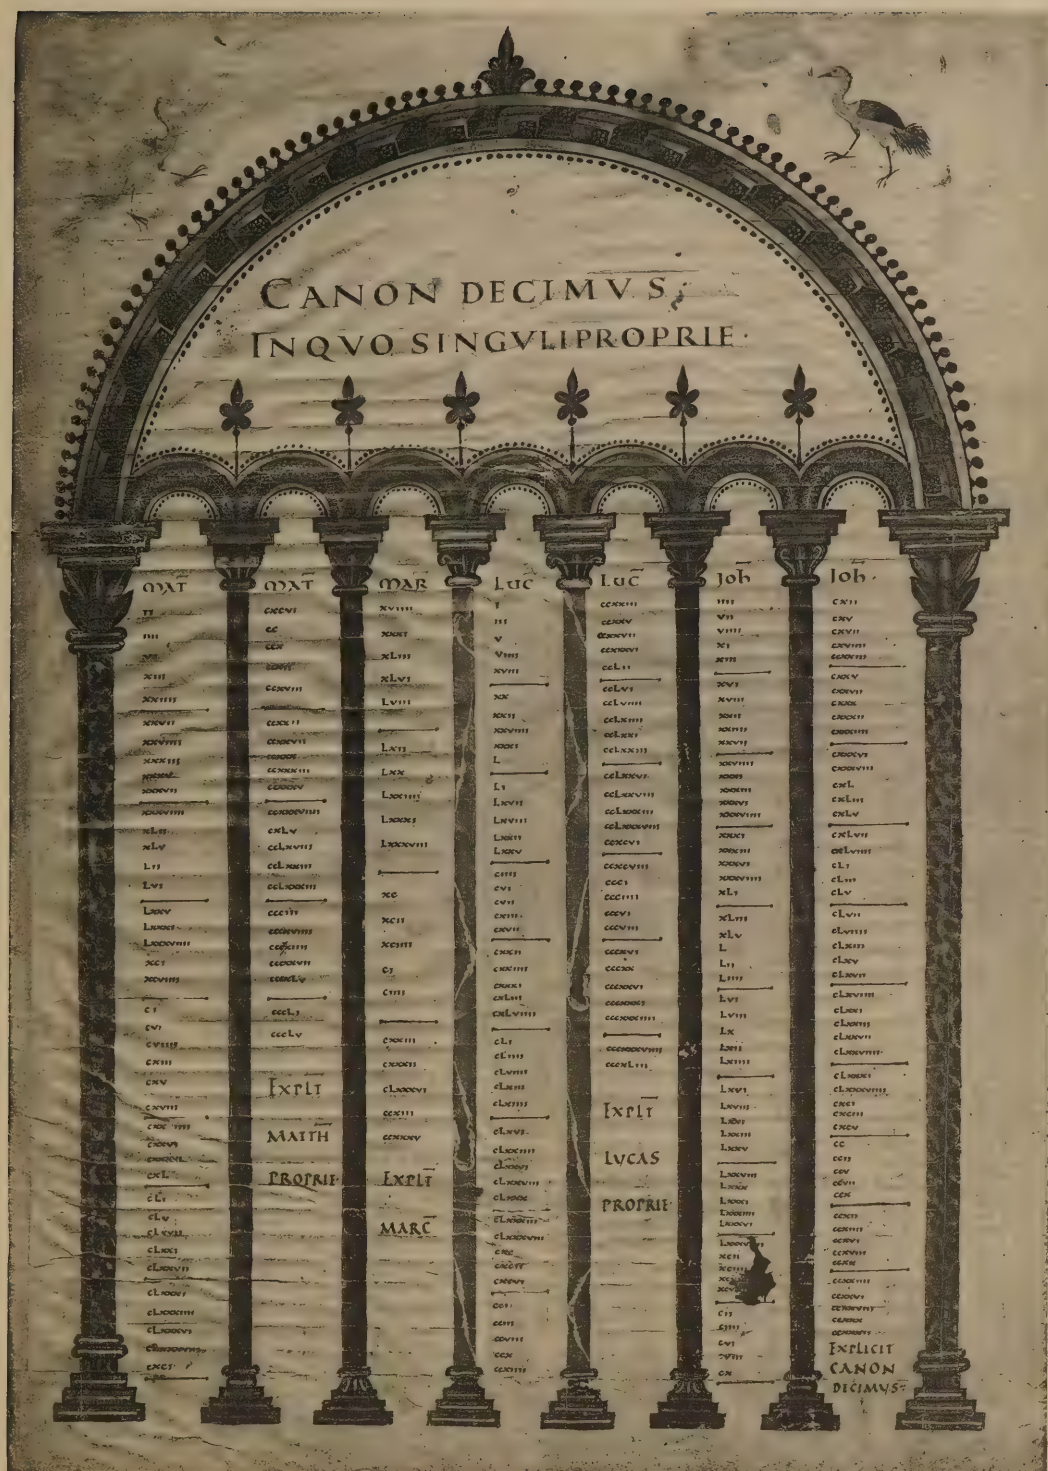 CANON DECIMVS
IN QVO SINGVLI PROPRIE·
MAT̄
II
IIII
VI
XIII
XXIIII
XXVII
XXVIIII
XXXIII
XXXVII
XXXVIIII
XLII
XLV
LII
LVI
LXXV
LXXXI
LXXXVIIII
XCI
XCVIIII
CI
CVI
CVIIII
CXIII
CXV
CXVIII
CXXIIII
CXXVI
CXL
CLI
CLV
CLXXI
CLXXVII
CLXXXI
CLXXXIIII
CLXXXVI
CXCI
MAT̄
CXCVI
CC
CCX
CCXVIII
CCXXII
CCXXVII
CCXXXIII
CCXXXV
CCXXXVIIII
CXLV
CCLXVIII
CCLXXIII
CCLXXXIII
CCCIII
CCCLI
CCCLV
EXPLIT̄
MATTH̄
PROPRIE·
MAR̄
XVIIII
XXXI
XLIII
XLVI
LVIII
LXII
LXX
LXXIIII
LXXXI
LXXXVIII
XC
XCII
XCIIII
CI
CIIII
CXXIII
CXXXII
CLXXXVI
CCXIII
CCXXXV
EXPLIT̄
MARC̄
LUC̄
I
III
V
VIIII
XVIII
XX
XXII
XXVIIII
XXXI
L
LI
LXVII
LXVIII
LXXII
LXXV
CIIII
CVI
CVII
CXIII
CXVII
CXXII
CXXIIII
CXXXI
CXLIII
CXLVIIII
CLI
CLIIII
CLVIIII
CLXIII
CLXIIII
CLXVI
CLXXIIII
CLXXVI
CLXXVIII
CLXXX
CLXXXIII
CLXXXVIII
CXC
CXCVI
CCI
CCIII
CCVIII
CCX
CCXIIII
LUC̄
CCXXIII
CCXXV
CCXXVII
CCXXXVI
CCLII
CCLVI
CCLVIIII
CCLXIIII
CCLXXI
CCLXXIII
CCLXXVI
CCLXXVIII
CCLXXXIII
CCLXXXVIII
CCXCVI
CCXCVIII
CCCI
CCCIIII
CCCVI
CCCVIII
CCCXVI
CCCXX
CCCXXVI
CCCXXXI
CCCXXXIIII
CCCXXXVIIII
CCCXLIII
EXPLIT̄
LVCAS
PROPRIE·
IOH̄
IIII
VII
VIIII
XI
XIII
XVI
XVIII
XXII
XXIIII
XXVII
XXVIIII
XXXI
XXXIIII
XXXVI
XXXVIIII
XLI
XLIII
XLV
L
LII
LIIII
LVI
LVIII
LX
LXII
LXIIII
LXVI
LXVIII
LXXI
LXXIII
LXXV
LXXVIII
LXXX
LXXXI
LXXXIII
LXXXVI
XCII
CII
CIIII
CVI
CX
IOH̄·
CXII
CXV
CXVII
CXVIIII
CCXXIII
CXXV
CXXVII
CXXX
CXXXII
CXXXIIII
CXXXVI
CXXXVIII
CXL
CXLIII
CXLV
CXLVII
CXLVIIII
CLI
CLIII
CLV
CLVII
CLVIIII
CLXIII
CLXV
CLXVII
CLXVIIII
CLXXI
CLXXIIII
CLXXVII
CLXXVIIII
CLXXXI
CLXXXVIIII
CXCI
CXCIII
CXCV
CC
CCII
CCV
CCVII
CCX
CCXII
CCXIIII
CCXVI
CCXVIII
CCXX
CCXXIIII
CCXXVI
CCXXVIIII
CCXXX
CCXXXII
EXPLICIT
CANON
DECIMVS: